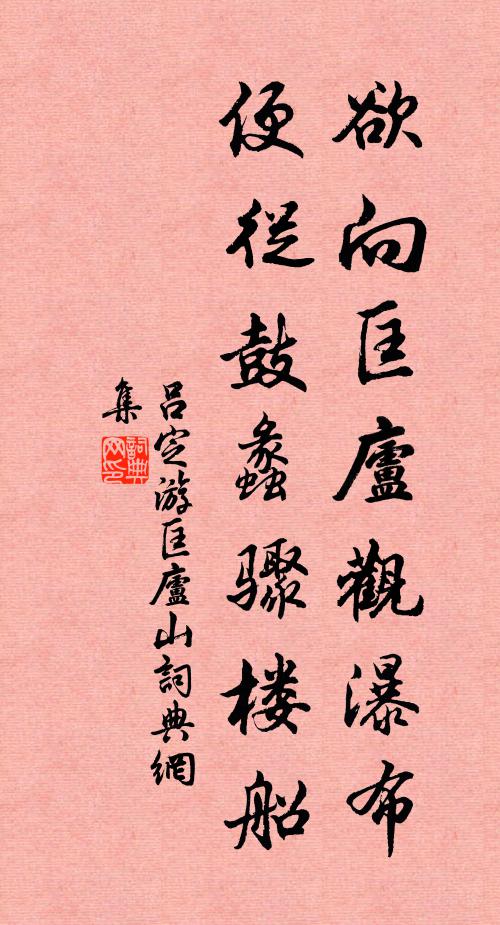 欲向匡廬觀瀑布
便從鼓蠡驟楼船
吕定游匡廬山詞典網
集
詞典網印